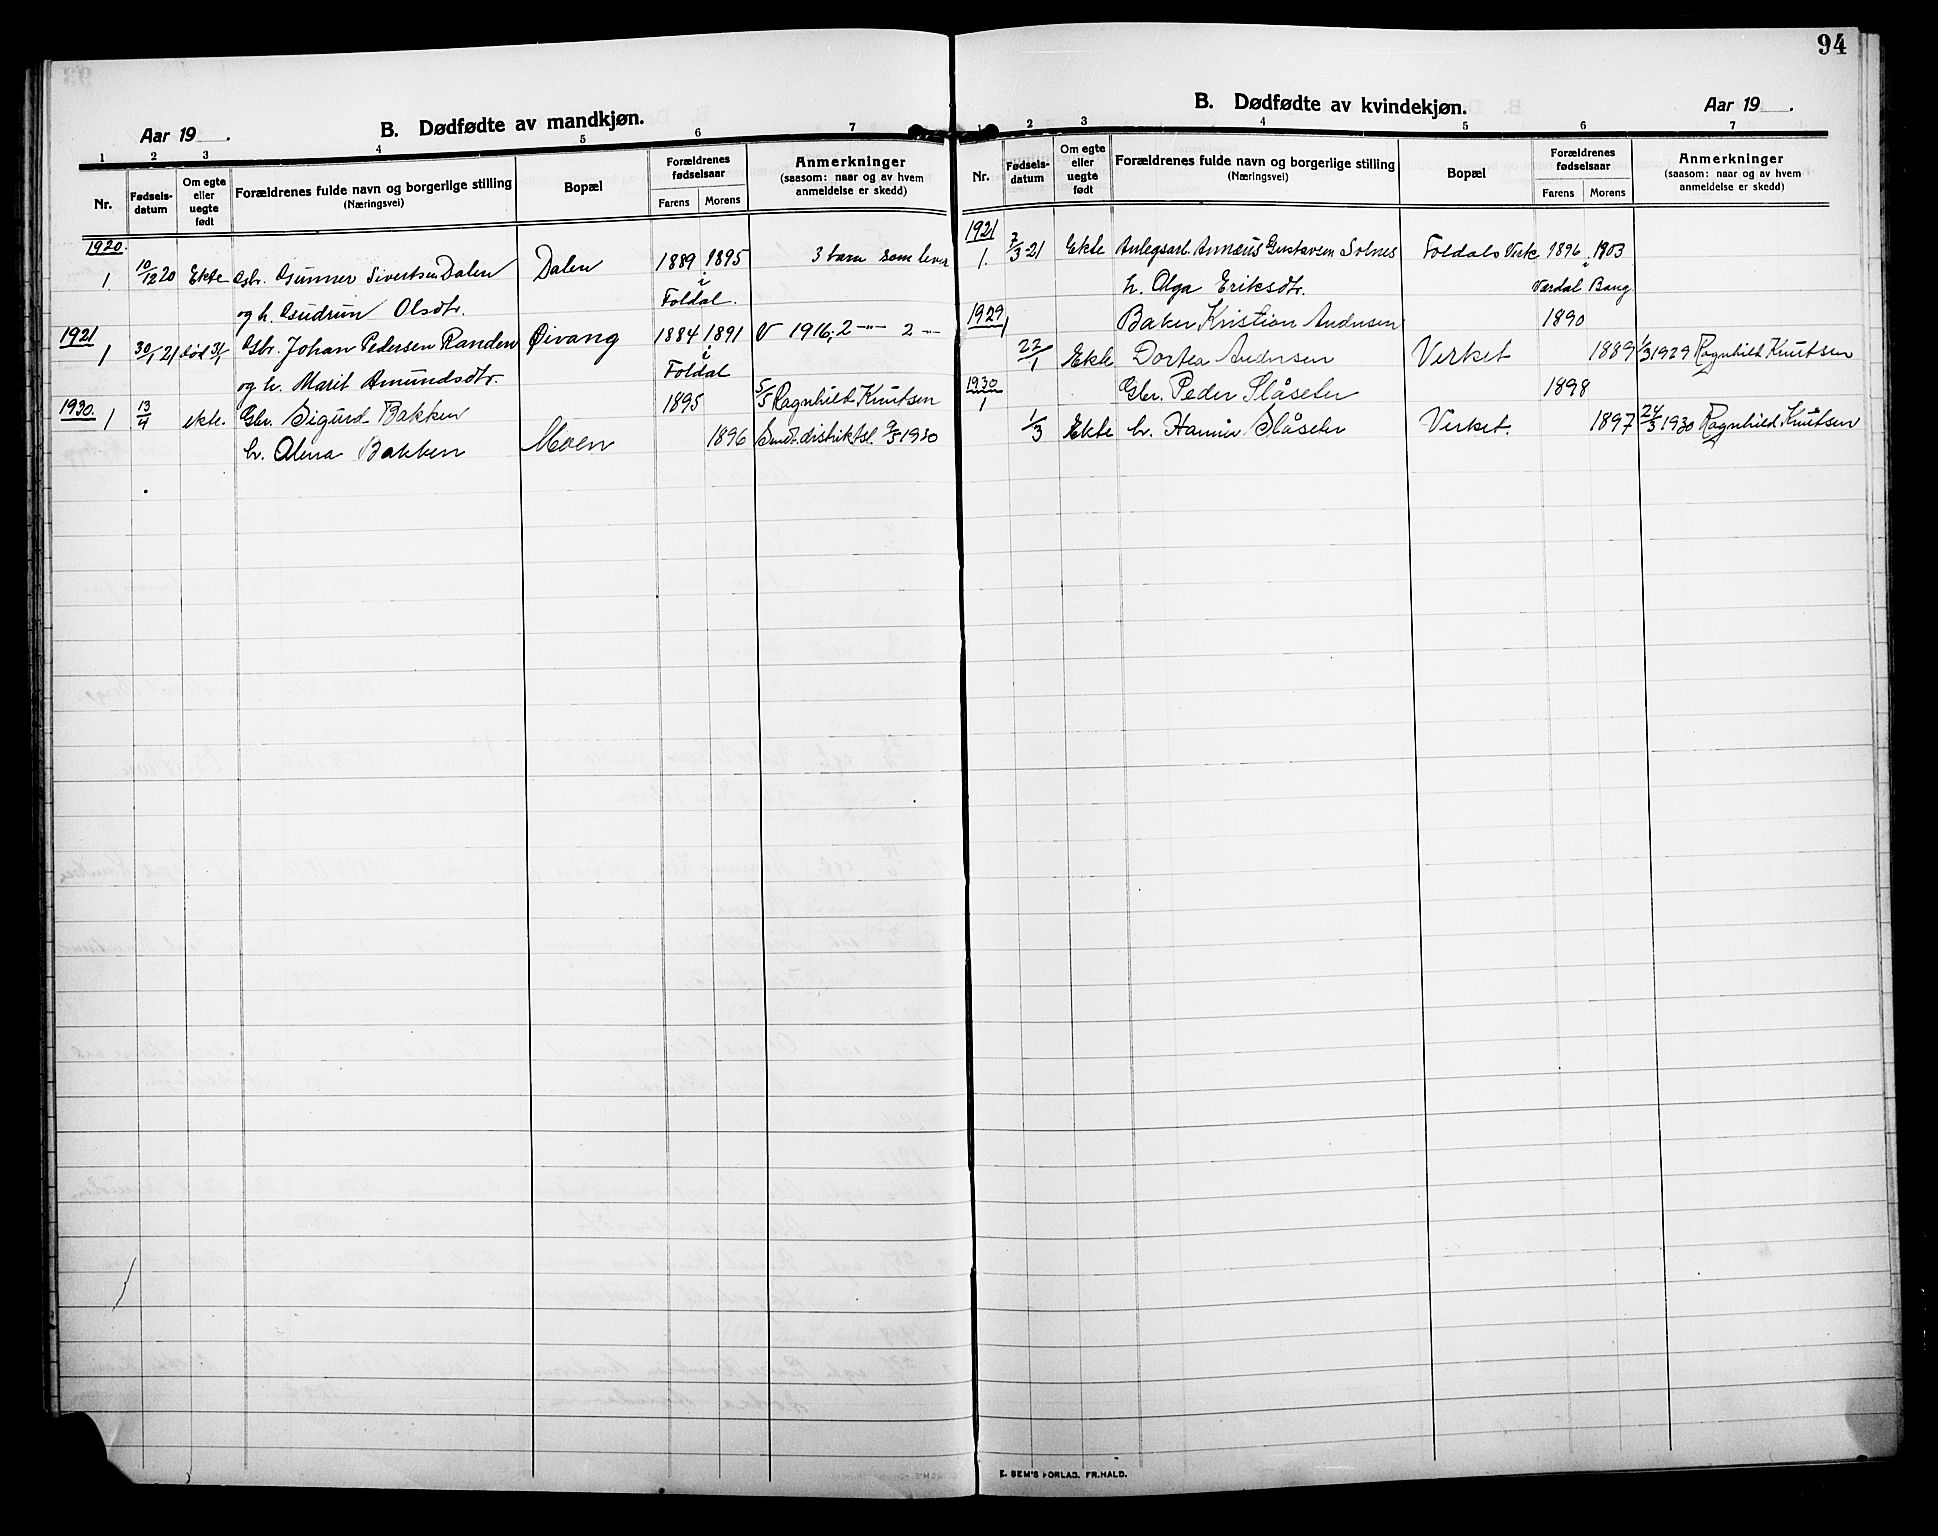 94
Aar 19 .
B. Dødfødte av mandkjøn.
1 2 3 4 5 6 7
Nr.
Fødsels-
datum
Om egte
eller
uegte
født
Forældrenes fulde navn og borgerlige stilling
(Næringsvei)
Bopæl
Forældrenes
fødselsaar
Farens Morens
Anmerkninger
(saasom: naar og av hvem
anmeldelse er skedd)
1920.
1. 10/12 20 Ekte Gbr. Gunner Sivertsen Dalen Dalen 1889 1895 3 barn som lever
i
og h. Gudrun Olsdtr. Foldal.
1921
1 30/1 21 død 31/1 Gbr. Johan Pedersen Randen Øivang 1884 1891 V 1916; 2 -"- 2 -
i
og h. Marit Amundsdtr. Foldal
1930. 1 13/4 ekte. Gbr. Sigurd Bakken 1895 5/5 Ragnhild Knutsen
h. Alma Bakken Moen 1896 Smst. distriktsl. 9/5 1930
B. Dødfødte av kvindekjøn.
Aar 19 .
1 2 3 4 5 6 7
Nr.
Fødsels-
datum
Om egte
eller
uegte
født
Forældrenes fulde navn og borgerlige stilling
(Næringsvei)
Bopæl
Forældrenes
fødselsaar
Farens Morens
Anmerkninger
(saasom: naar og av hvem
anmeldelse er skedd)
1921
1. 7/3 21 Ekte Anlegsarb. Annæus Gustavsen Solnes Foldals Verk 1896 1903
i
h. Olga Eriksdtr. Værdal Bang
1929
1 Baker Kristian Andersen 1890
22/1 Ekte Dortea Andersen Virket 1889 1/3 1929 Ragnhild Knutsen
1930
1 Gbr. Peder Slåseter 1898
1/3 Ekte h. Hanna Slåseter Virket. 1897 24/3 1930 Ragnhild Knutsen
E. SEM'S FORLAG, FR.HALD.